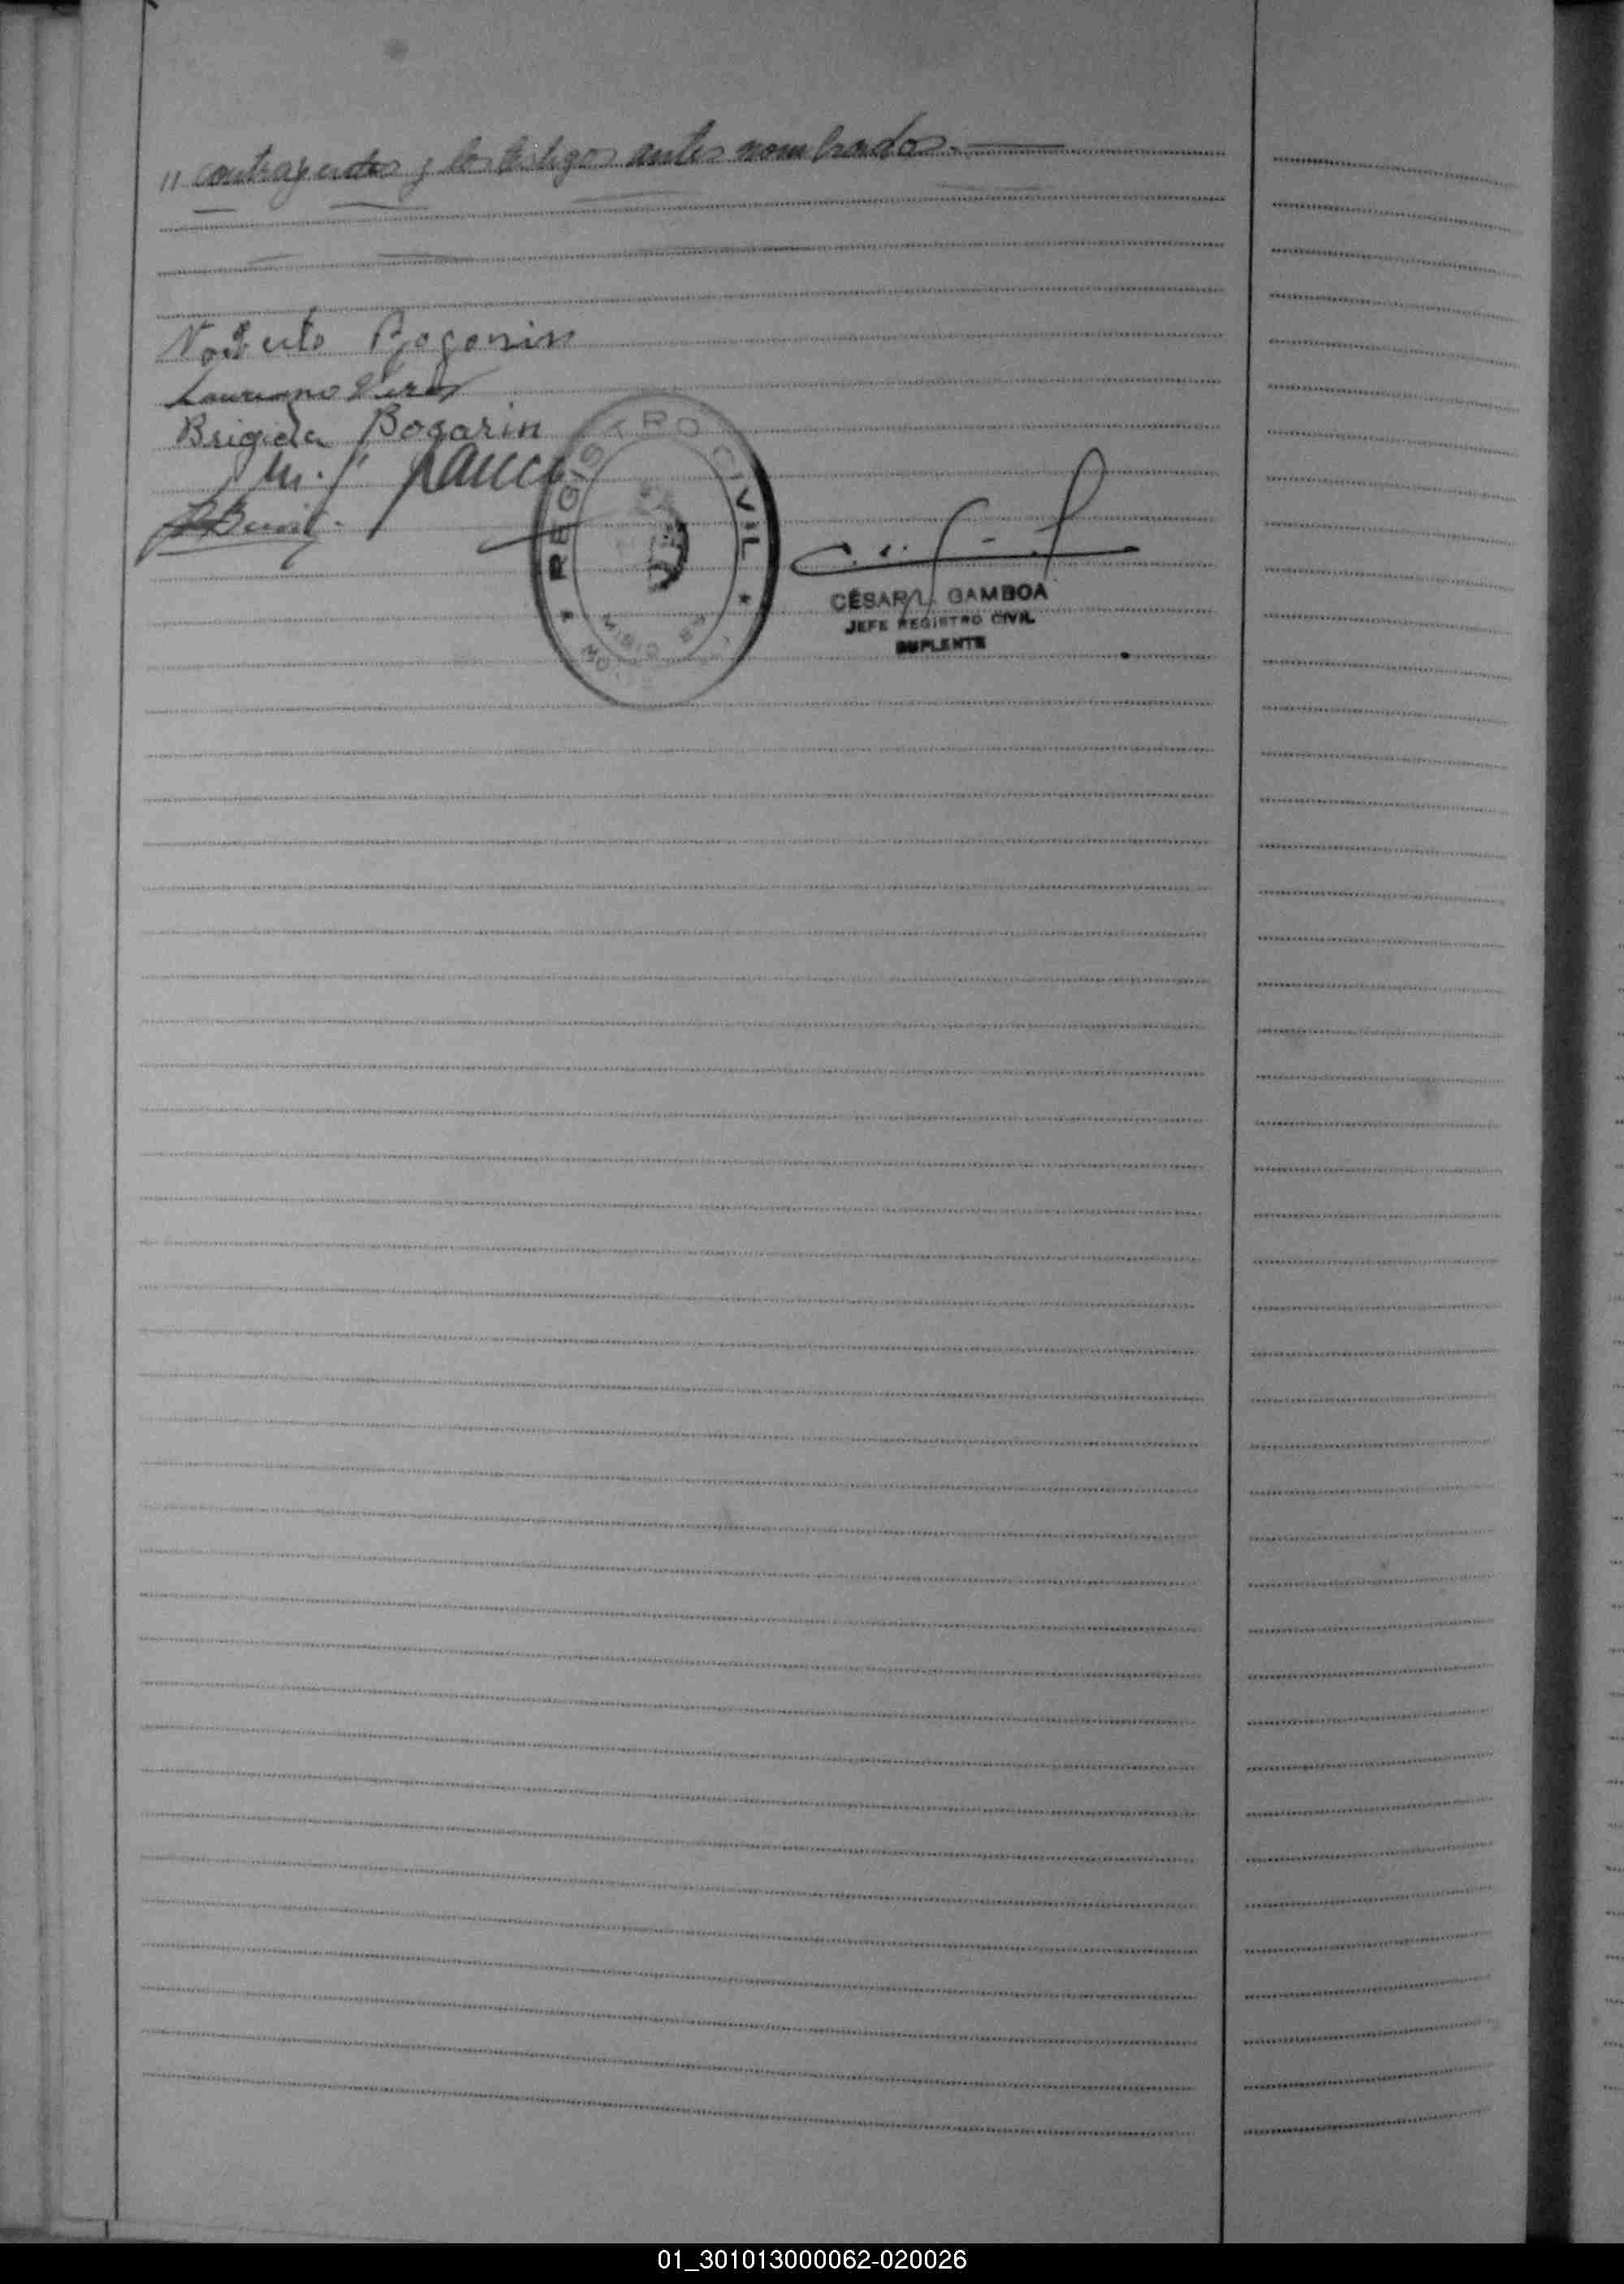 " contrayentes y los testigos antes nombrados.
Norberto Bogarin
Laureano
Brigida Bogarin
REGISTRO CIVIL
CÉSAR L. GAMBOA
JEFE REGISTRO CIVIL
SUPLENTE
01_301013000062-020026